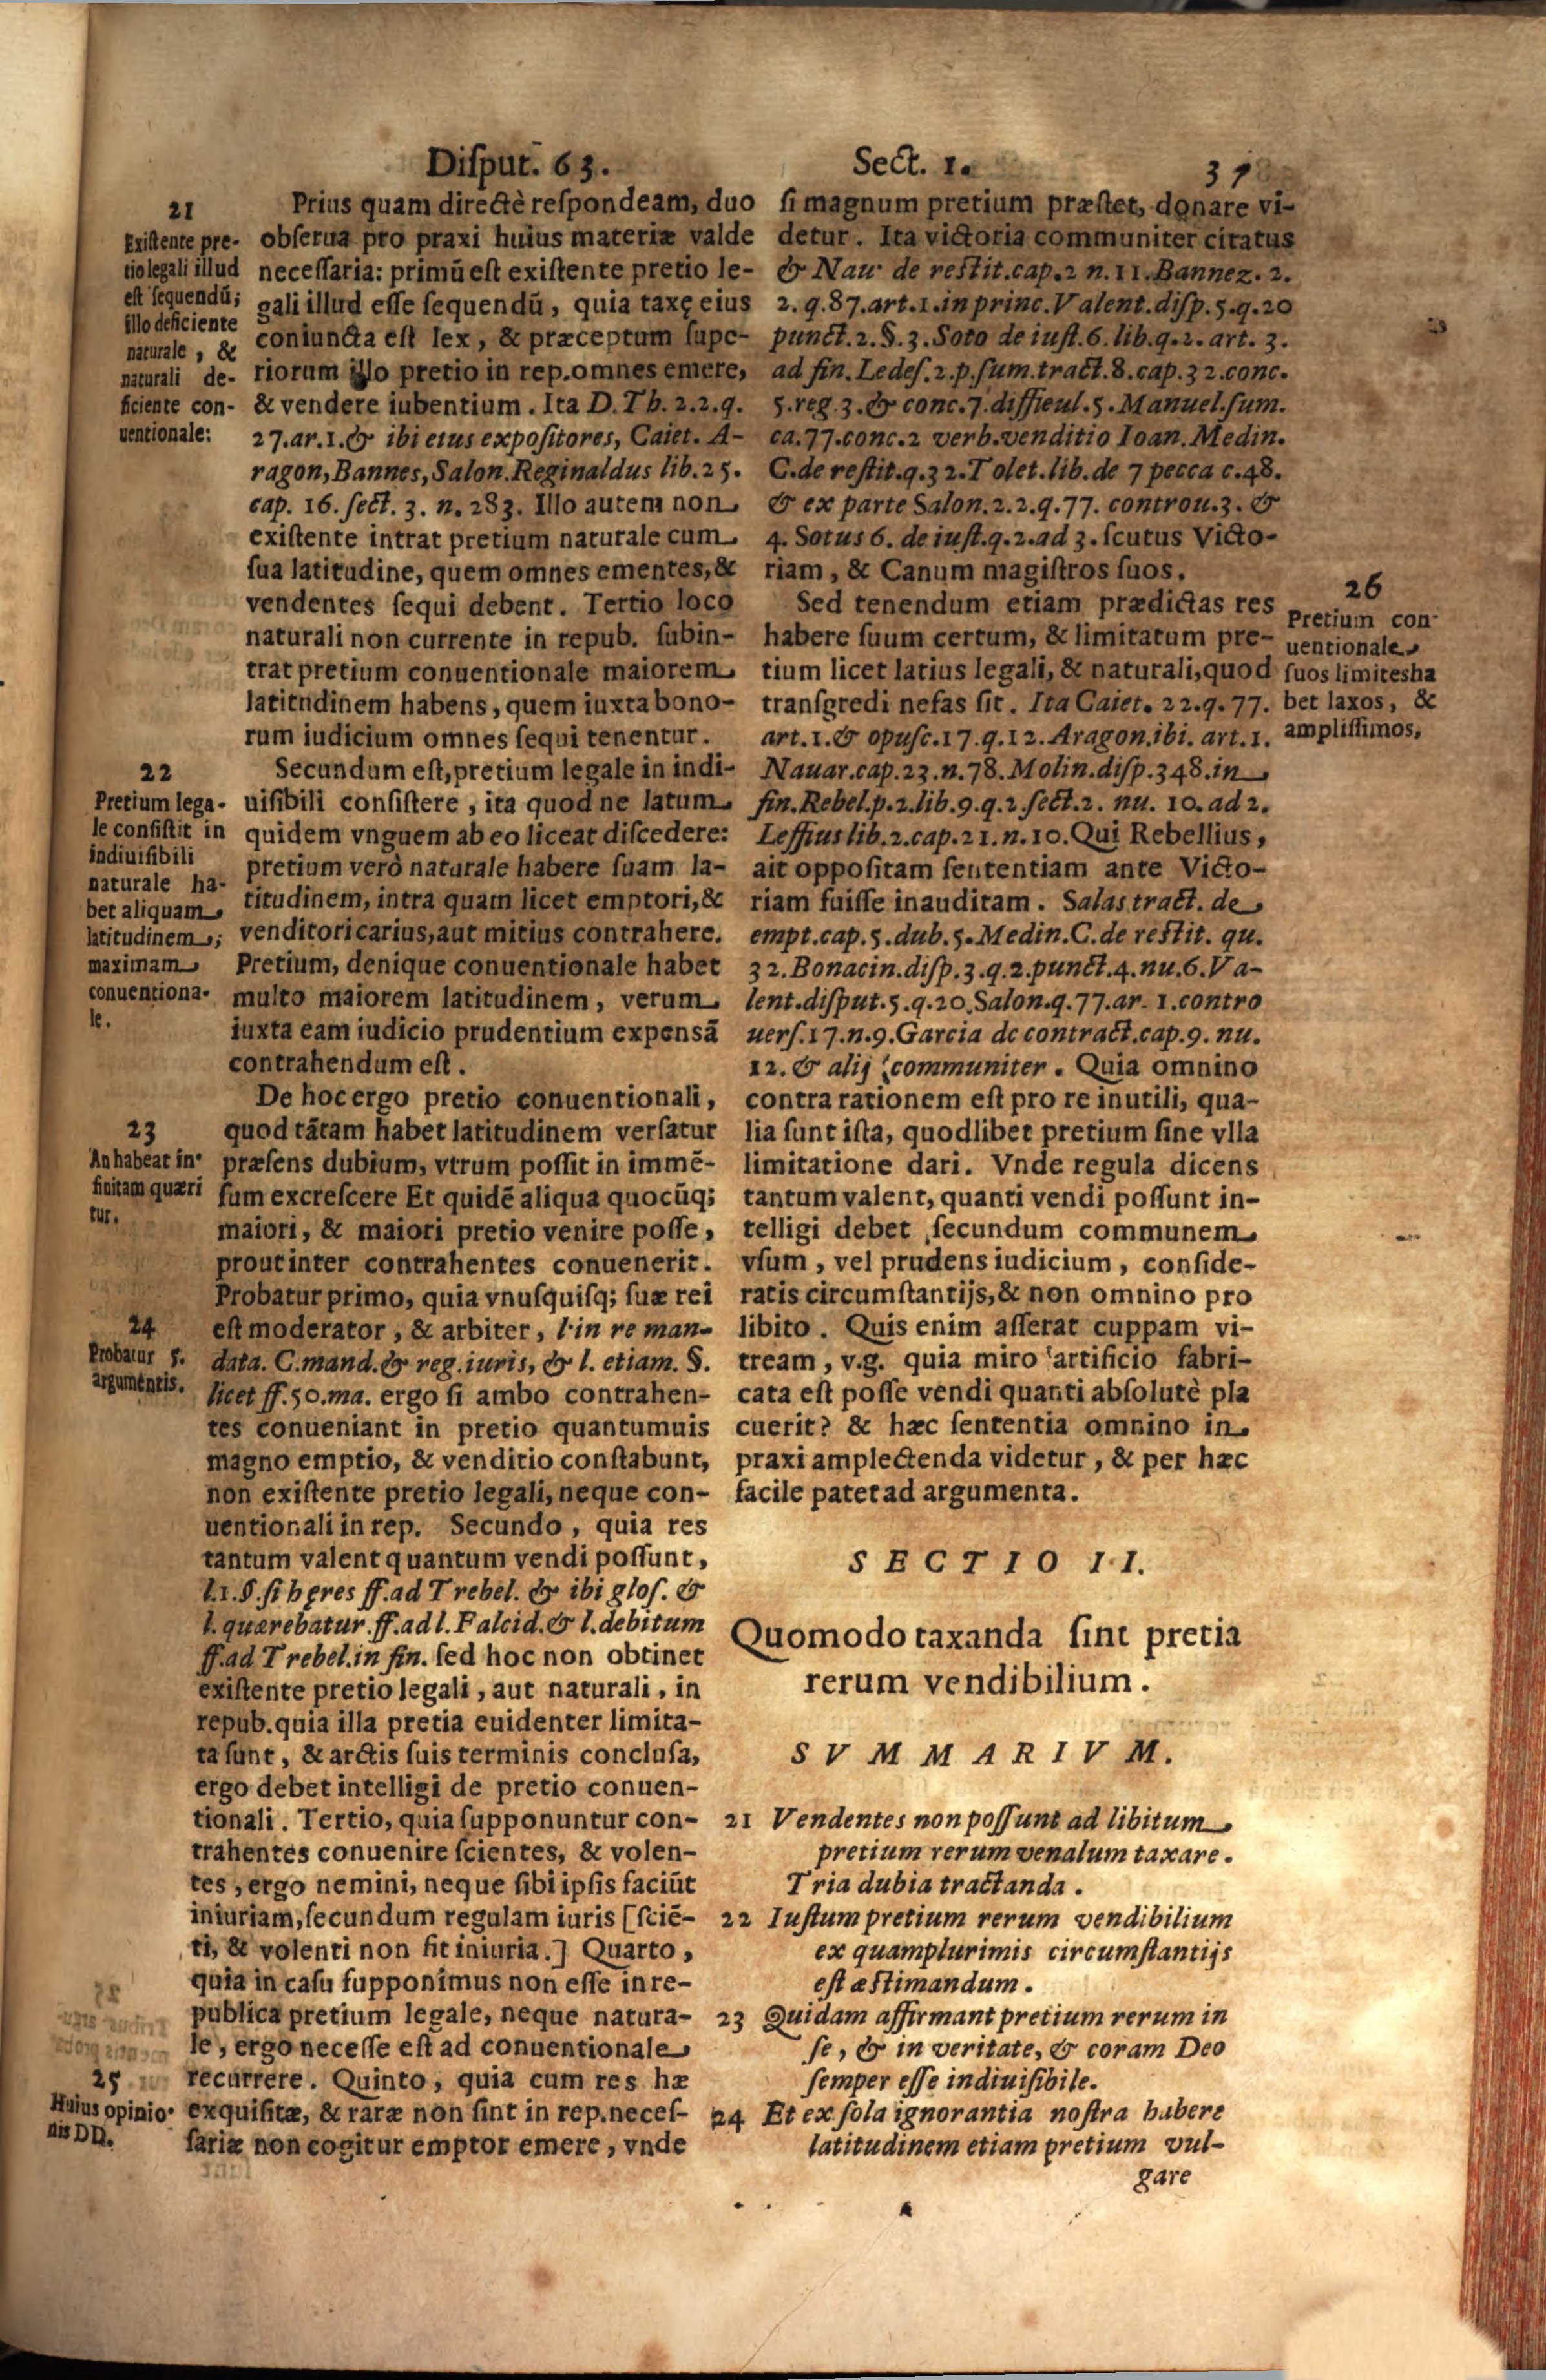 Diſput. 63.
Sect. 1.
37
21
Exiſtente pre-
tio legali illud
eſt ſequendũ;
illo deficiente
naturale, &
naturali de-
ficiente con-
uentionale:
Prius quam directè reſpondeam, duo
obſerua pro praxi huius materiæ valde
neceſſaria: primũ eſt exiſtente pretio le-
gali illud eſſe ſequendũ, quia taxę eius
coniuncta eſt lex, & præceptum ſupe-
riorum illo pretio in rep.omnes emere,
& vendere iubentium. Ita D. Th. 2.2.q.
27.ar.1.& ibi eius expoſitores, Caiet. A-
ragon, Bannes, Salon. Reginaldus lib.25.
cap. 16. ſect. 3. n. 283. Illo autem non
exiſtente intrat pretium naturale cum
ſua latitudine, quem omnes ementes, &
vendentes ſequi debent. Tertio loco
naturali non currente in repub. ſubin-
trat pretium conuentionale maiorem
latitndinem habens, quem iuxta bono-
rum iudicium omnes ſequi tenentur.
22
Pretium lega-
le conſiſtit in
indiuiſibili
naturale ha-
bet aliquam
latitudinem;
maximam
conuentiona-
le.
Secundum eſt, pretium legale in indi-
uiſibili conſiſtere, ita quod ne latum
quidem vnguem ab eo liceat diſcedere:
pretium verò naturale habere ſuam la-
titudinem, intra quam licet emptori, &
venditori carius, aut mitius contrahere.
Pretium, denique conuentionale habet
multo maiorem latitudinem, verum
iuxta eam iudicio prudentium expensã
contrahendum eſt.
23
An habeat in-
finitam quæri
tur.
De hoc ergo pretio conuentionali,
quod tãtam habet latitudinem verſatur
præſens dubium, vtrum poſſit in immē-
ſum excreſcere Et quidē aliqua quocũq;
maiori, & maiori pretio venire poſſe,
prout inter contrahentes conuenerit.
24
Probatur 5.
argumentis.
Probatur primo, quia vnuſquiſq; ſuæ rei
eſt moderator, & arbiter, l.in re man-
data. C.mand.& reg.iuris, & l. etiam. §.
licet ff.50.ma. ergo ſi ambo contrahen-
tes conueniant in pretio quantumuis
magno emptio, & venditio conſtabunt,
non exiſtente pretio legali, neque con-
uentionali in rep. Secundo, quia res
tantum valent quantum vendi poſſunt,
l.1.§.ſi hęres ff.ad Trebel. & ibi gloſ. &
l. quærebatur.ff.ad l. Falcid.& l.debitum
ff.ad Trebel.in fin. ſed hoc non obtinet
exiſtente pretio legali, aut naturali, in
repub.quia illa pretia euidenter limita-
ta ſunt, & arctis ſuis terminis concluſa,
ergo debet intelligi de pretio conuen-
tionali. Tertio, quia ſupponuntur con-
trahentes conuenire ſcientes, & volen-
tes, ergo nemini, neque ſibi ipſis faciũt
iniuriam, ſecundum regulam iuris [ſciē-
ti, & volenti non fit iniuria.] Quarto,
quia in caſu ſupponimus non eſſe in re-
publica pretium legale, neque natura-
le, ergo neceſſe eſt ad conuentionale
25
Huius opinio-
nis DD.
recurrere. Quinto, quia cum res hæ
exquiſitæ, & raræ non ſint in rep.neceſ-
ſariæ non cogitur emptor emere, vnde
ſi magnum pretium præſtet, donare vi-
detur. Ita victoria communiter citatus
& Nau. de reſtit.cap.2 n.11.Bannez. 2.
2.q.87.art.1.in princ.Valent.diſp.5.q.20
punct.2.§.3.Soto de iuſt.6.lib.q.2.art. 3.
ad fin.Ledeſ.2.p.ſum.tract.8.cap.32.conc.
5.reg.3.& conc.7.diffieul.5.Manuel.ſum.
ca.77.conc.2 verb.venditio Ioan.Medin.
C.de reſtit.q.32.Tolet.lib.de 7 pecca c.48.
& ex parte Salon.2.2.q.77. controu.3. &
4. Sotus 6. de iuſt.q.2.ad 3. ſcutus Victo-
riam, & Canum magiſtros ſuos.
26
Pretium con-
uentionale
ſuos limites ha
bet laxos, &
ampliſſimos,
Sed tenendum etiam prædictas res
habere ſuum certum, & limitatum pre-
tium licet latius legali, & naturali, quod
tranſgredi nefas ſit. Ita Caiet. 22.q.77.
art.1.& opuſc.17.q.12.Aragon.ibi. art.1.
Nauar.cap.23.n.78.Molin.diſp.348.in
fin.Rebel.p.2.lib.9.q.2.ſect.2. nu. 10.ad 2.
Leſſius lib.2.cap.21.n.10.Qui Rebellius,
ait oppoſitam ſententiam ante Victo-
riam fuiſſe inauditam. Salas tract. de
empt.cap.5.dub.5.Medin.C.de reſtit. qu.
32.Bonacin.diſp.3.q.2.punct.4.nu.6.Va-
lent.diſput.5.q.20.Salon.q.77.ar. 1.contro
uerſ.17.n.9.Garcia de contract.cap.9. nu.
12.& alij communiter. Quia omnino
contra rationem eſt pro re inutili, qua-
lia ſunt iſta, quodlibet pretium ſine vlla
limitatione dari. Vnde regula dicens
tantum valent, quanti vendi poſſunt in-
telligi debet ſecundum communem
vſum, vel prudens iudicium, conſide-
ratis circumſtantijs, & non omnino pro
libito. Quis enim aſſerat cuppam vi-
tream, v.g. quia miro artificio fabri-
cata eſt poſſe vendi quanti abſolutè pla
cuerit? & hæc ſententia omnino in
praxi amplectenda videtur, & per hæc
facile patet ad argumenta.
SECTIO II.
Quomodo taxanda ſint pretia
rerum vendibilium.
SVMMARIVM.
21 Vendentes non poſſunt ad libitum
pretium rerum venalum taxare.
Tria dubia tractanda.
22 Iuſtum pretium rerum vendibilium
ex quamplurimis circumſtantijs
eſt æſtimandum.
23 Quidam affirmant pretium rerum in
ſe, & in veritate, & coram Deo
ſemper eſſe indiuiſibile.
24 Et ex ſola ignorantia noſtra habere
latitudinem etiam pretium vul-
gare